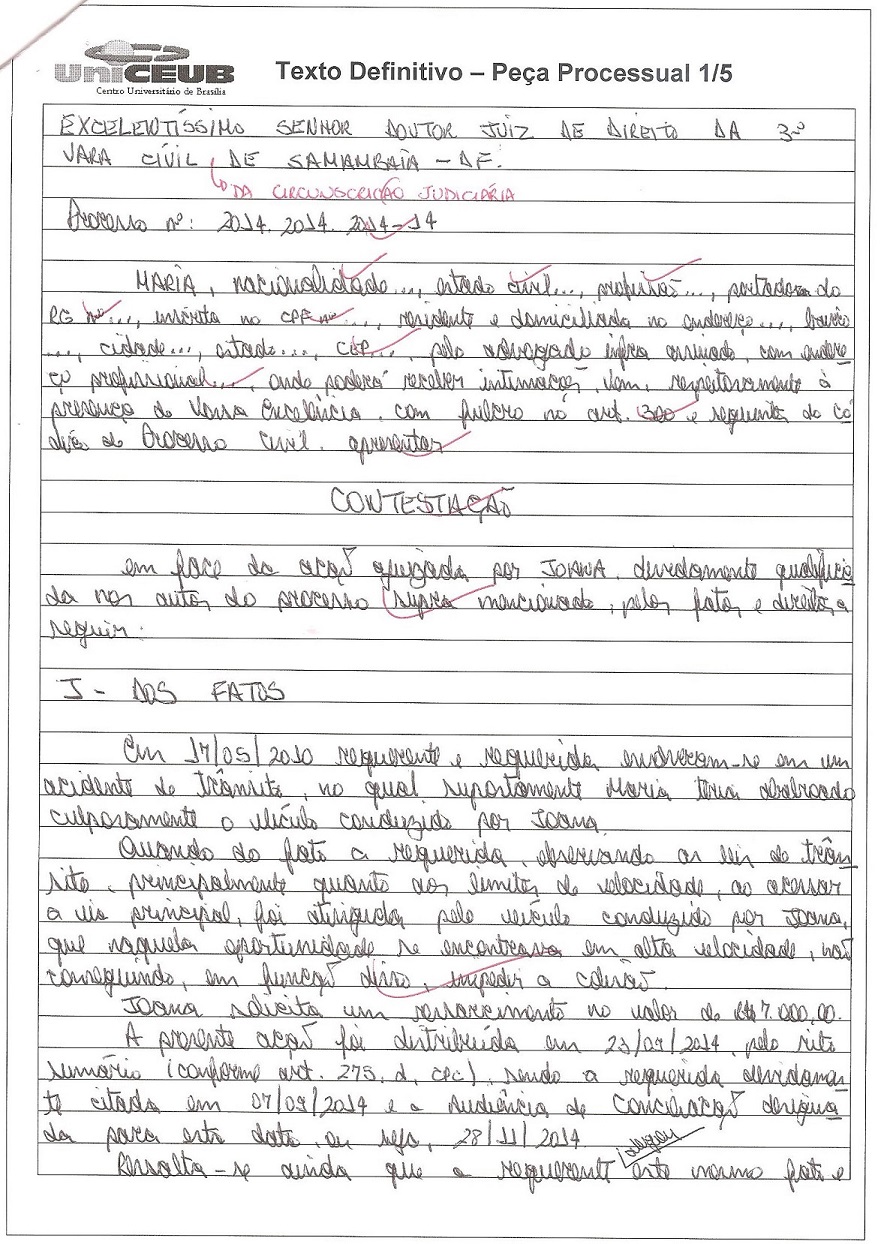 UniCEUB
Centro Universitário de Brasília
Texto Definitivo – Peça Processual 1/5
EXCELENTÍSSIMO SENHOR DOUTOR JUIZ DE DIREITO DA 3ª
VARA CIVIL DE SAMAMBAIA – DF.
DA CIRCUNSCRIÇÃO JUDICIÁRIA
Processo nº: 2014. 2014. 2014-14
MARIA, nacionalidade..., estado civil..., profissão..., portadora do
RG nº..., inscrita no CPF nº..., residente e domiciliada no endereço..., bairro
..., cidade..., estado..., CEP..., pelo advogado infra assinado, com endere
ço profissional..., onde poderá receber intimações, vem, respeitosamente à
presença de Vossa Excelência, com fulcro no art. 300 e seguintes do Có
digo de Processo Civil, apresentar
CONTESTAÇÃO
em face da ação ajuizada por JOANA, devidamente qualifica
da nos autos do processo supra mencionado, pelos fatos e direitos a
seguir:
I - DOS FATOS
Em 17/05/2010 requerente e requerida envolveram-se em um
acidente de trânsito, no qual supostamente Maria teria abalroado
culposamente o veículo conduzido por Joana.
Quando do fato a requerida, observando as leis de trân
sito, principalmente quanto aos limites de velocidade, ao acessar
a via principal, foi atingida pelo veículo conduzido por Joana,
que naquela oportunidade se encontrava em alta velocidade, não
conseguindo, em função disso, impedir a colisão.
Joana solicita um ressarcimento no valor de R$ 7.000,00.
A presente ação foi distribuída em 23/09/2014, pelo rito
sumário (conforme art. 275, d, CPC), sendo a requerida devidamen
te citada em 07/09/2014 e a Audiência de Conciliação designa
da para esta data, ou seja, 28/11/2014.
alegou
Ressalta-se ainda que a requerente este mesmo fato e